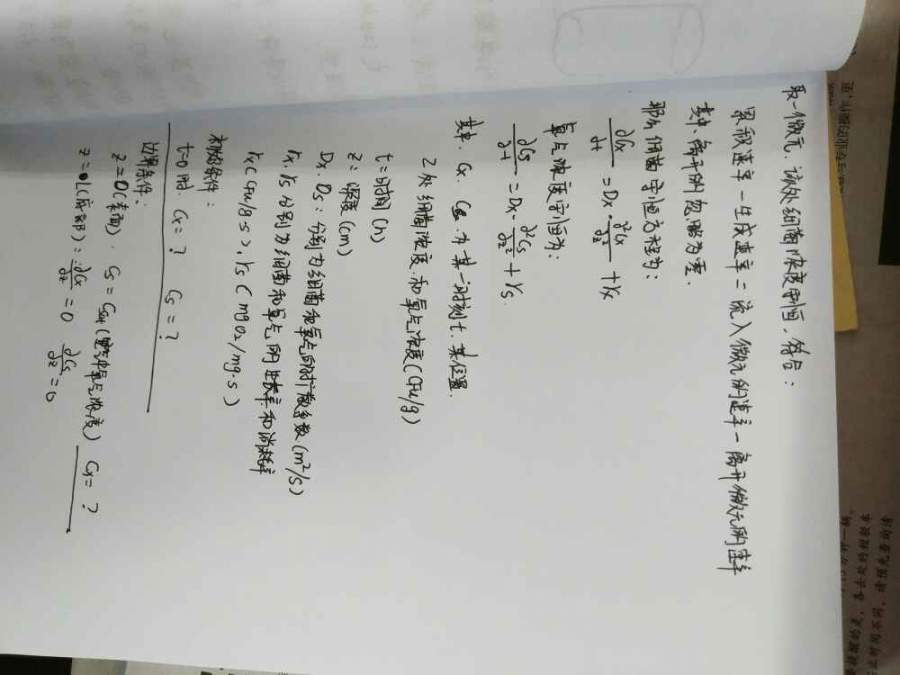 取一微元,该处细菌浓度守恒,符合:
累积速率-生成速率=流入微元的速率-离开微元的速率
其中,离开的忽略为零.
那么细菌守恒方程为:
∂Cx/∂t = Dx·∂²Cx/∂z² + rx
氧气浓度守恒为:
∂Cs/∂t = Dx·∂²Cs/∂z² + rs.
其中,Cx. Cs.为某一时刻t.某位置
Z处细菌浓度和氧气浓度(CFU/g)
t:时间(h)
z:深度(cm)
Dx. Ds:分别为细菌和氧气的扩散系数(m²/s)
rx. rs分别为细菌和氧气的生长率和消耗率
rx(CFU/g·s), rs(mgO₂/mg·s)
初始条件:
t=0时. Cx=? Cs=?
边界条件:
z=0(表面). Cs=(氧气浓度) Cx=?
∂Cx/∂z=0 ∂Cs/∂z=0